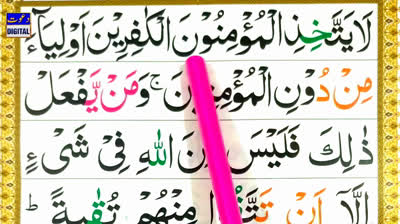 دعوت
DIGITAL
لَا يَتَّخِذِ الْمُؤْمِنُوْنَ الْكٰفِرِيْنَ اَوْلِيَآءَ
مِنْ دُوْنِ الْمُؤْمِنِيْنَ ۚ وَمَنْ يَّفْعَلْ
ذٰلِكَ فَلَيْسَ اللّٰهِ فِىْ شَىْءٍ
اِلَّاۤ اَنْ مِنْهُمْ تُقٰىةً ؕ